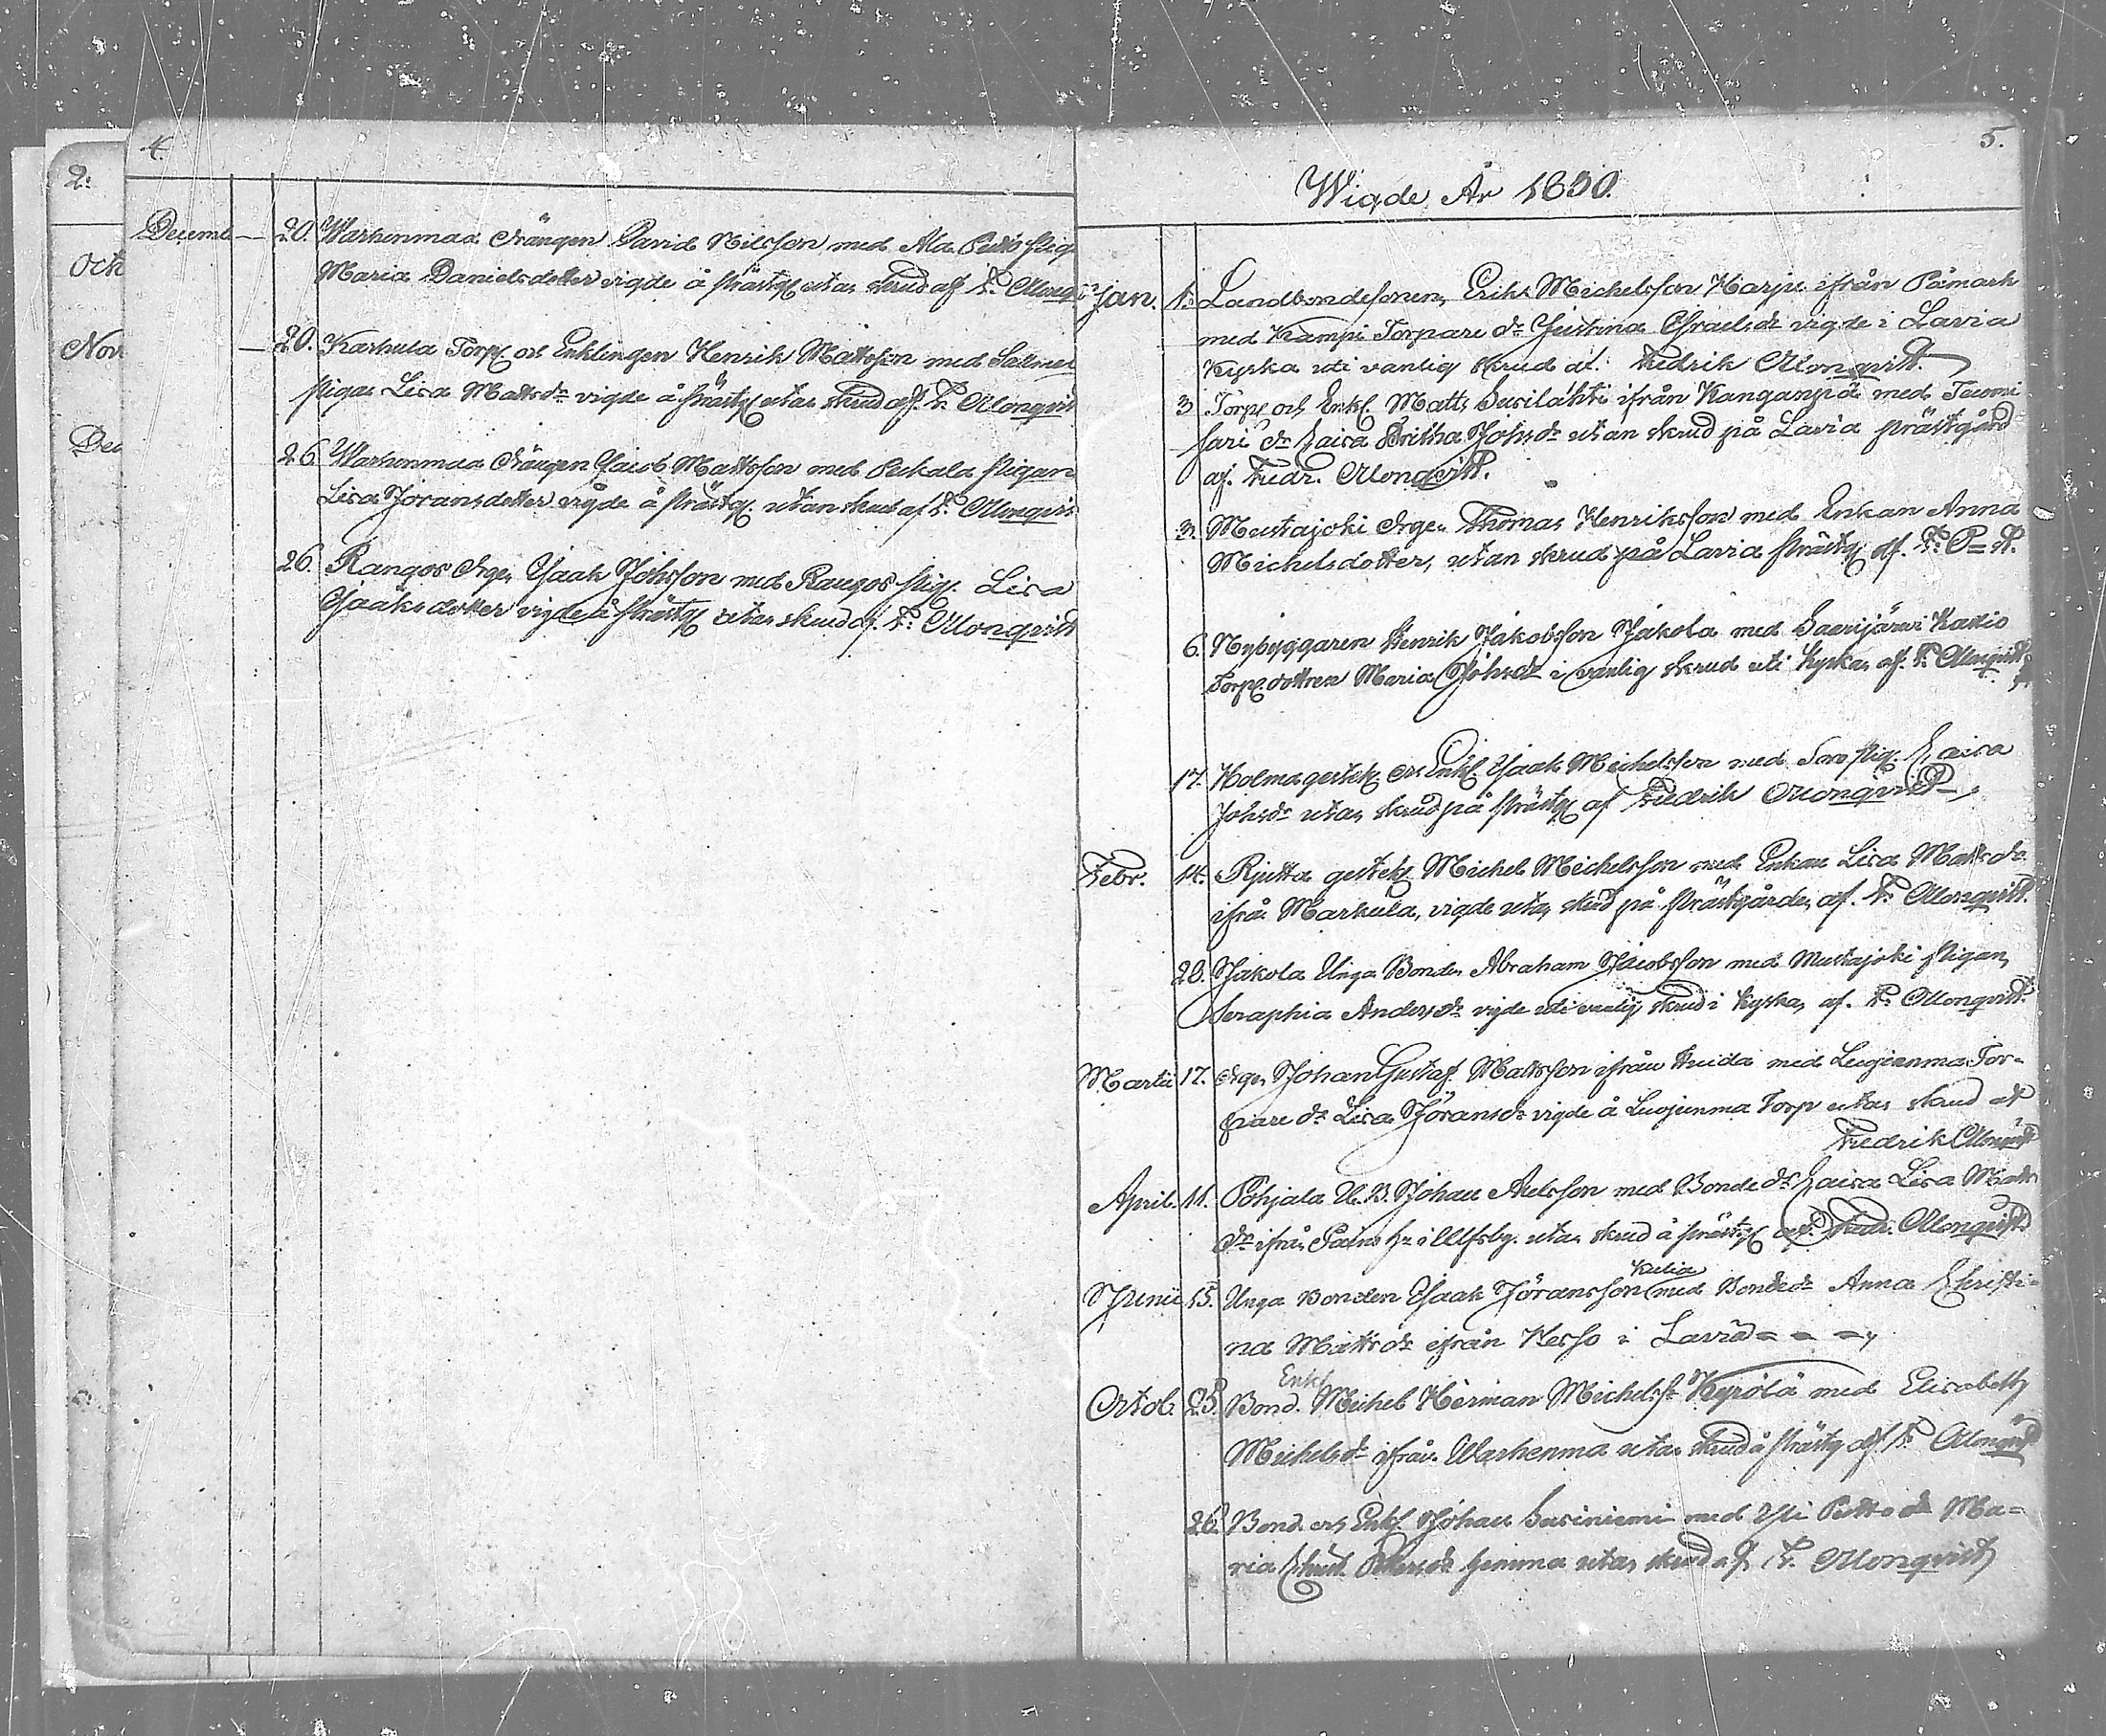 2:
Octb
Nov
Dec
4.
Decemb — 20. Warhenmaa Drängen David Nilsson med Ala Pedts Pig.
Maria Danielsdotter vigde å Prästg. utan skrud af F. Monqvist
— 20. Karhula Torp. och Enklingen Henrik Mattsson med Salmel
Pigan Lisa Mattsdr vigde å Prästg. utan skrud af F. Monqvist
26 Warhenmaa Drängen Jacob Mattsson med Peckala Pigan
Lisa Jöransdotter vigde å Prästg. utan skrud af F. Monqvist
26. Rangos Drgn Isaak Johsson med Rangos Pig. Lisa
Isaaksdotter vigde å Prästg. utan skrud af F. Monqvist
5.
Wigde År 1850.
Jan. 1. Landbondesonen Erik Michelsson Harju ifrån Påmark
med Kampi Torpare dr Justina Israelsdr vigde i Lavia
Kyrka uti vanlig skrud af: Fredrik Monqvist.
3 Torp. och Enkl. Matts Susilahti ifrån Kanganpä med Tuomi
sari dr Caisa Britha Johsdr utan skrud på Lavia prästgård
af. Fredr. Monqvist.
3. Mustajoki Drgn Thomas Henriksson med Enkan Anna
Michelsdotter, utan skrud på Lavia Prästg. af. F.
6. Nybyggaren Henrik Jakobsson Jakola med Saarijärvi Kallio
Torp. dottren Maria Johsdr i vanlig skrud uti Kyrkan af. F. Monqvist
17. Holma gestek. och Enkl. Isaak Michelsson med Soro Pig. Caisa
Johsdr utan skrud på Prästg. af Fredrik Monqvist
Febr. 14. Rjutta gestek. Michel Michelsson med Enkan Lisa Mattsdr
ifrån Markula, vigde utan skrud på Prästgården af. F. Monqvist.
28. Jakola Unga Bonden Abraham Jacobsson med Mustajoki Pigan
Seraphia Andersdr vigde uti vanlig skrud i Kyrkan af. F. Monqvist.
Martii 17. Drgn Johan Gustaf Mattsson ifrån Huida med Luojenma Tor-
pare dr Lisa Jöransdr vigde å Luojenma Torp utan skrud af
Fredrik Monqvist
April. 11. Pohjala U. B. Johan Axelsson med Bonde dr Caisa Lisa Matts
dr ifrån i Ulfsby. utan skrud å prästg. af. Fredr. Monqvist
Kulia
Junii 15. Unga Bonden Isaak Jöransson med Bondedr Anna Christi-
na Mattsdr ifrån Heso i Lavia
Enkl.
Octob. 25. Bond. Michel Herman Michelss. Kyrölä med Elisabeth
Michelsdr ifrån Warhenma utan skrud å Prästg af F. Monqvist
26. Bond. och Enkl. Johan Susiniemi med Yli Pettodr Ma-
ria Christ. hemma utan skrud af F. Monqvist